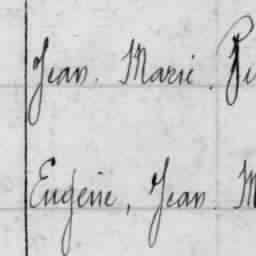 Jean. Marie. Pi
Eugène, Jean. M